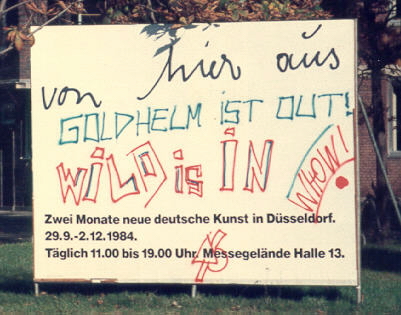 von hier aus
GOLDHELM IST OUT!
WILD is IN
WHOW!
Zwei Monate neue deutsche Kunst in Düsseldorf.
29.9.-2.12.1984.
Täglich 11.00 bis 19.00 Uhr, Messegelände Halle 13.